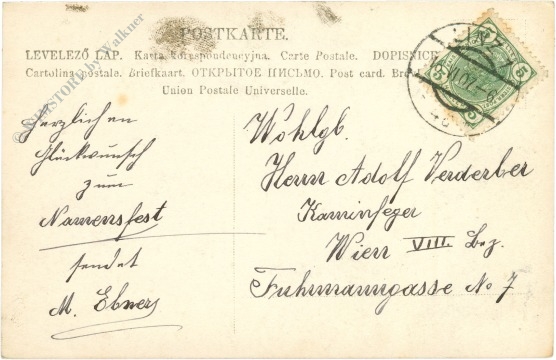 POSTKARTE.
LEVELEZŐ LAP. Karta korespondencyjna. Carte Postale. DOPISNICE
Cartolina postale. Briefkaart. ОТКРЫТОЕ ПИСЬМО. Post card.
Union Postale Universelle.
LINZ 1
5 5
5 5
by Walkner
Herzlichen
Glückwunsch
zum
Namensfest
sendet
M. Ebner
Wohlgb.
Herrn Adolf Verderber
Kaminfeger
Wien VIII. Bez.
Fuhrmanngasse No 7